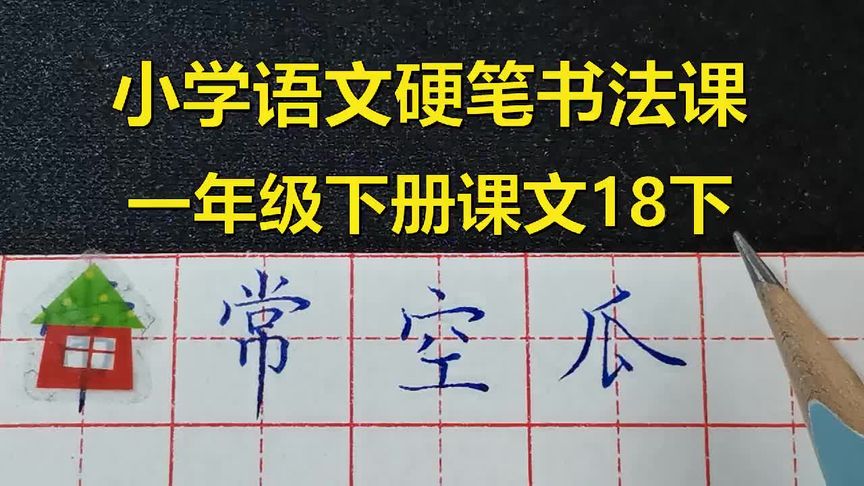 小学语文硬笔书法课
一年级下册课文18下
常空瓜